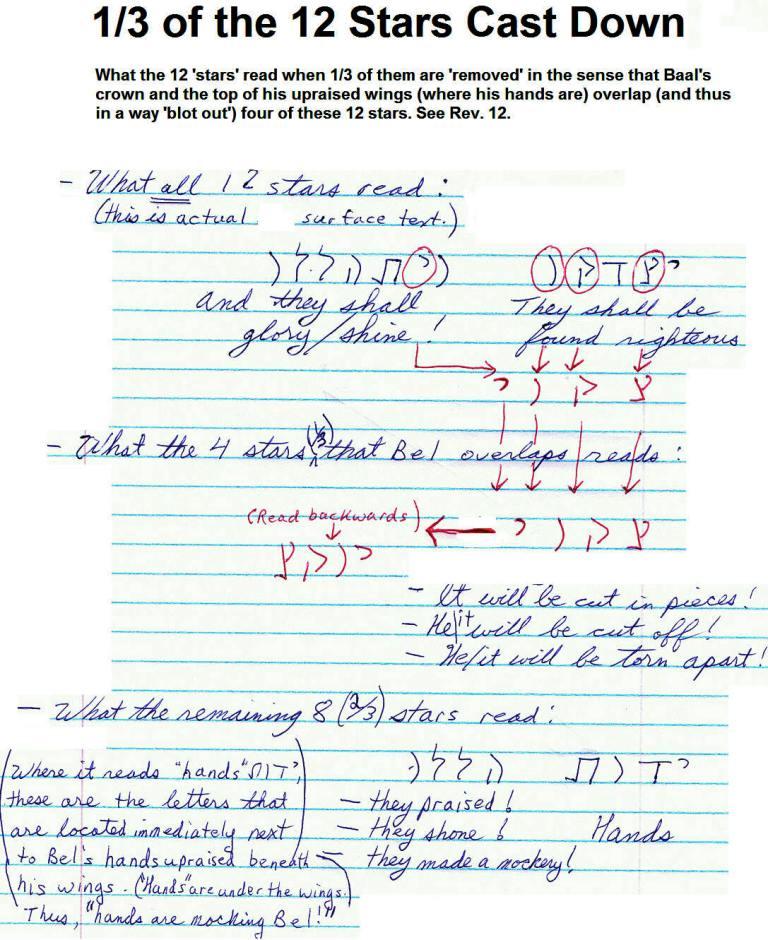 1/3 of the 12 Stars Cast Down
What the 12 'stars' read when 1/3 of them are 'removed' in the sense that Baal's
crown and the top of his upraised wings (where his hands are) overlap (and thus
in a way 'blot out') four of these 12 stars. See Rev. 12.
- What all 12 stars read:
(this is actual surface text.)
and they shall
glory/shine!
They shall be
found righteous
- What the 4 stars (1/3) that Bel overlaps reads:
(Read backwards)
- It will be cut in pieces!
- He/it will be cut off!
- He/it will be torn apart!
- What the remaining 8 (2/3) stars read:
(Where it reads "hands"
these are the letters that
are located immediately next
to Bel's hands upraised beneath
his wings. ("Hands" are under the wings.)
Thus, "hands are mocking Bel!")
- they praised!
- they shone!
- they made a mockery!
Hands